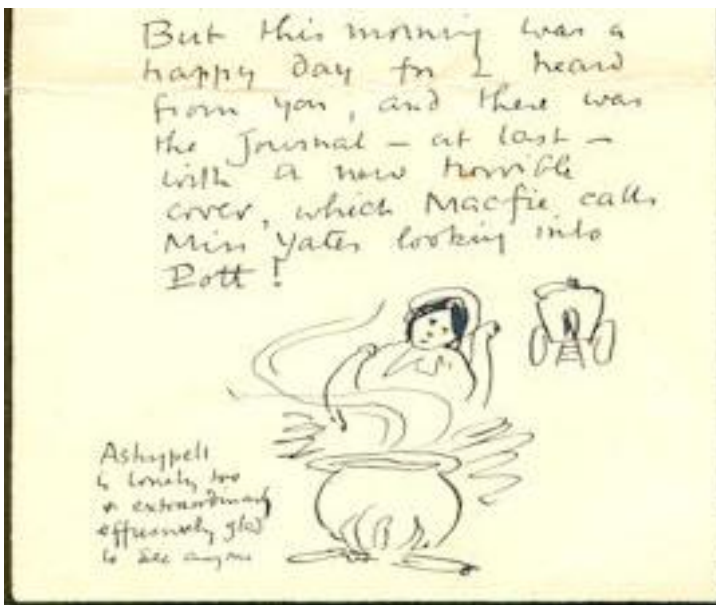 But this morning was a
happy day for I heard
from you, and there was
the Journal – at last –
with a new horrible
cover, which Macfie calls
Miss Yates looking into
Pott!
Ashypelt
is lonely too
& extraordinarily
effusively glad
to see anyone